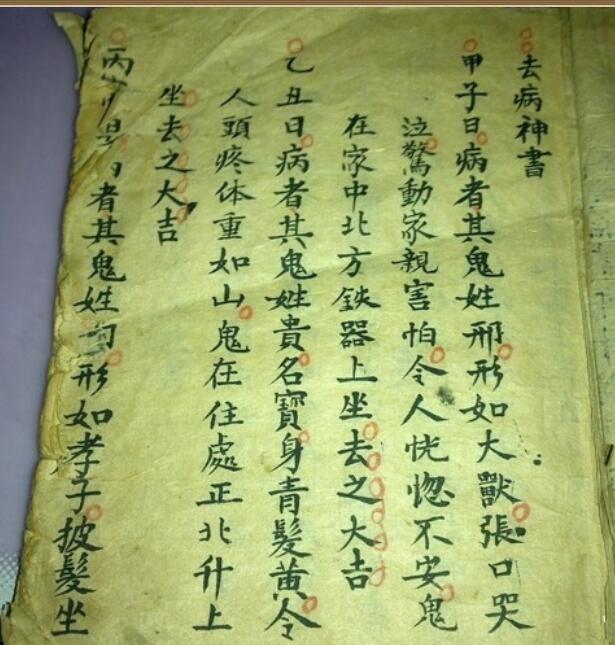 去病神書
甲子日病者其鬼姓邢形如大獸張口哭
泣驚動家親害怕令人恍惚不安鬼
在家中北方鉄器上坐去之大吉
乙丑日病者其鬼姓貴名寶身青髮黄令
人頭疼体重如山鬼在住處正北升上
坐去之大吉
丙日者其鬼姓形如孝子披髮坐